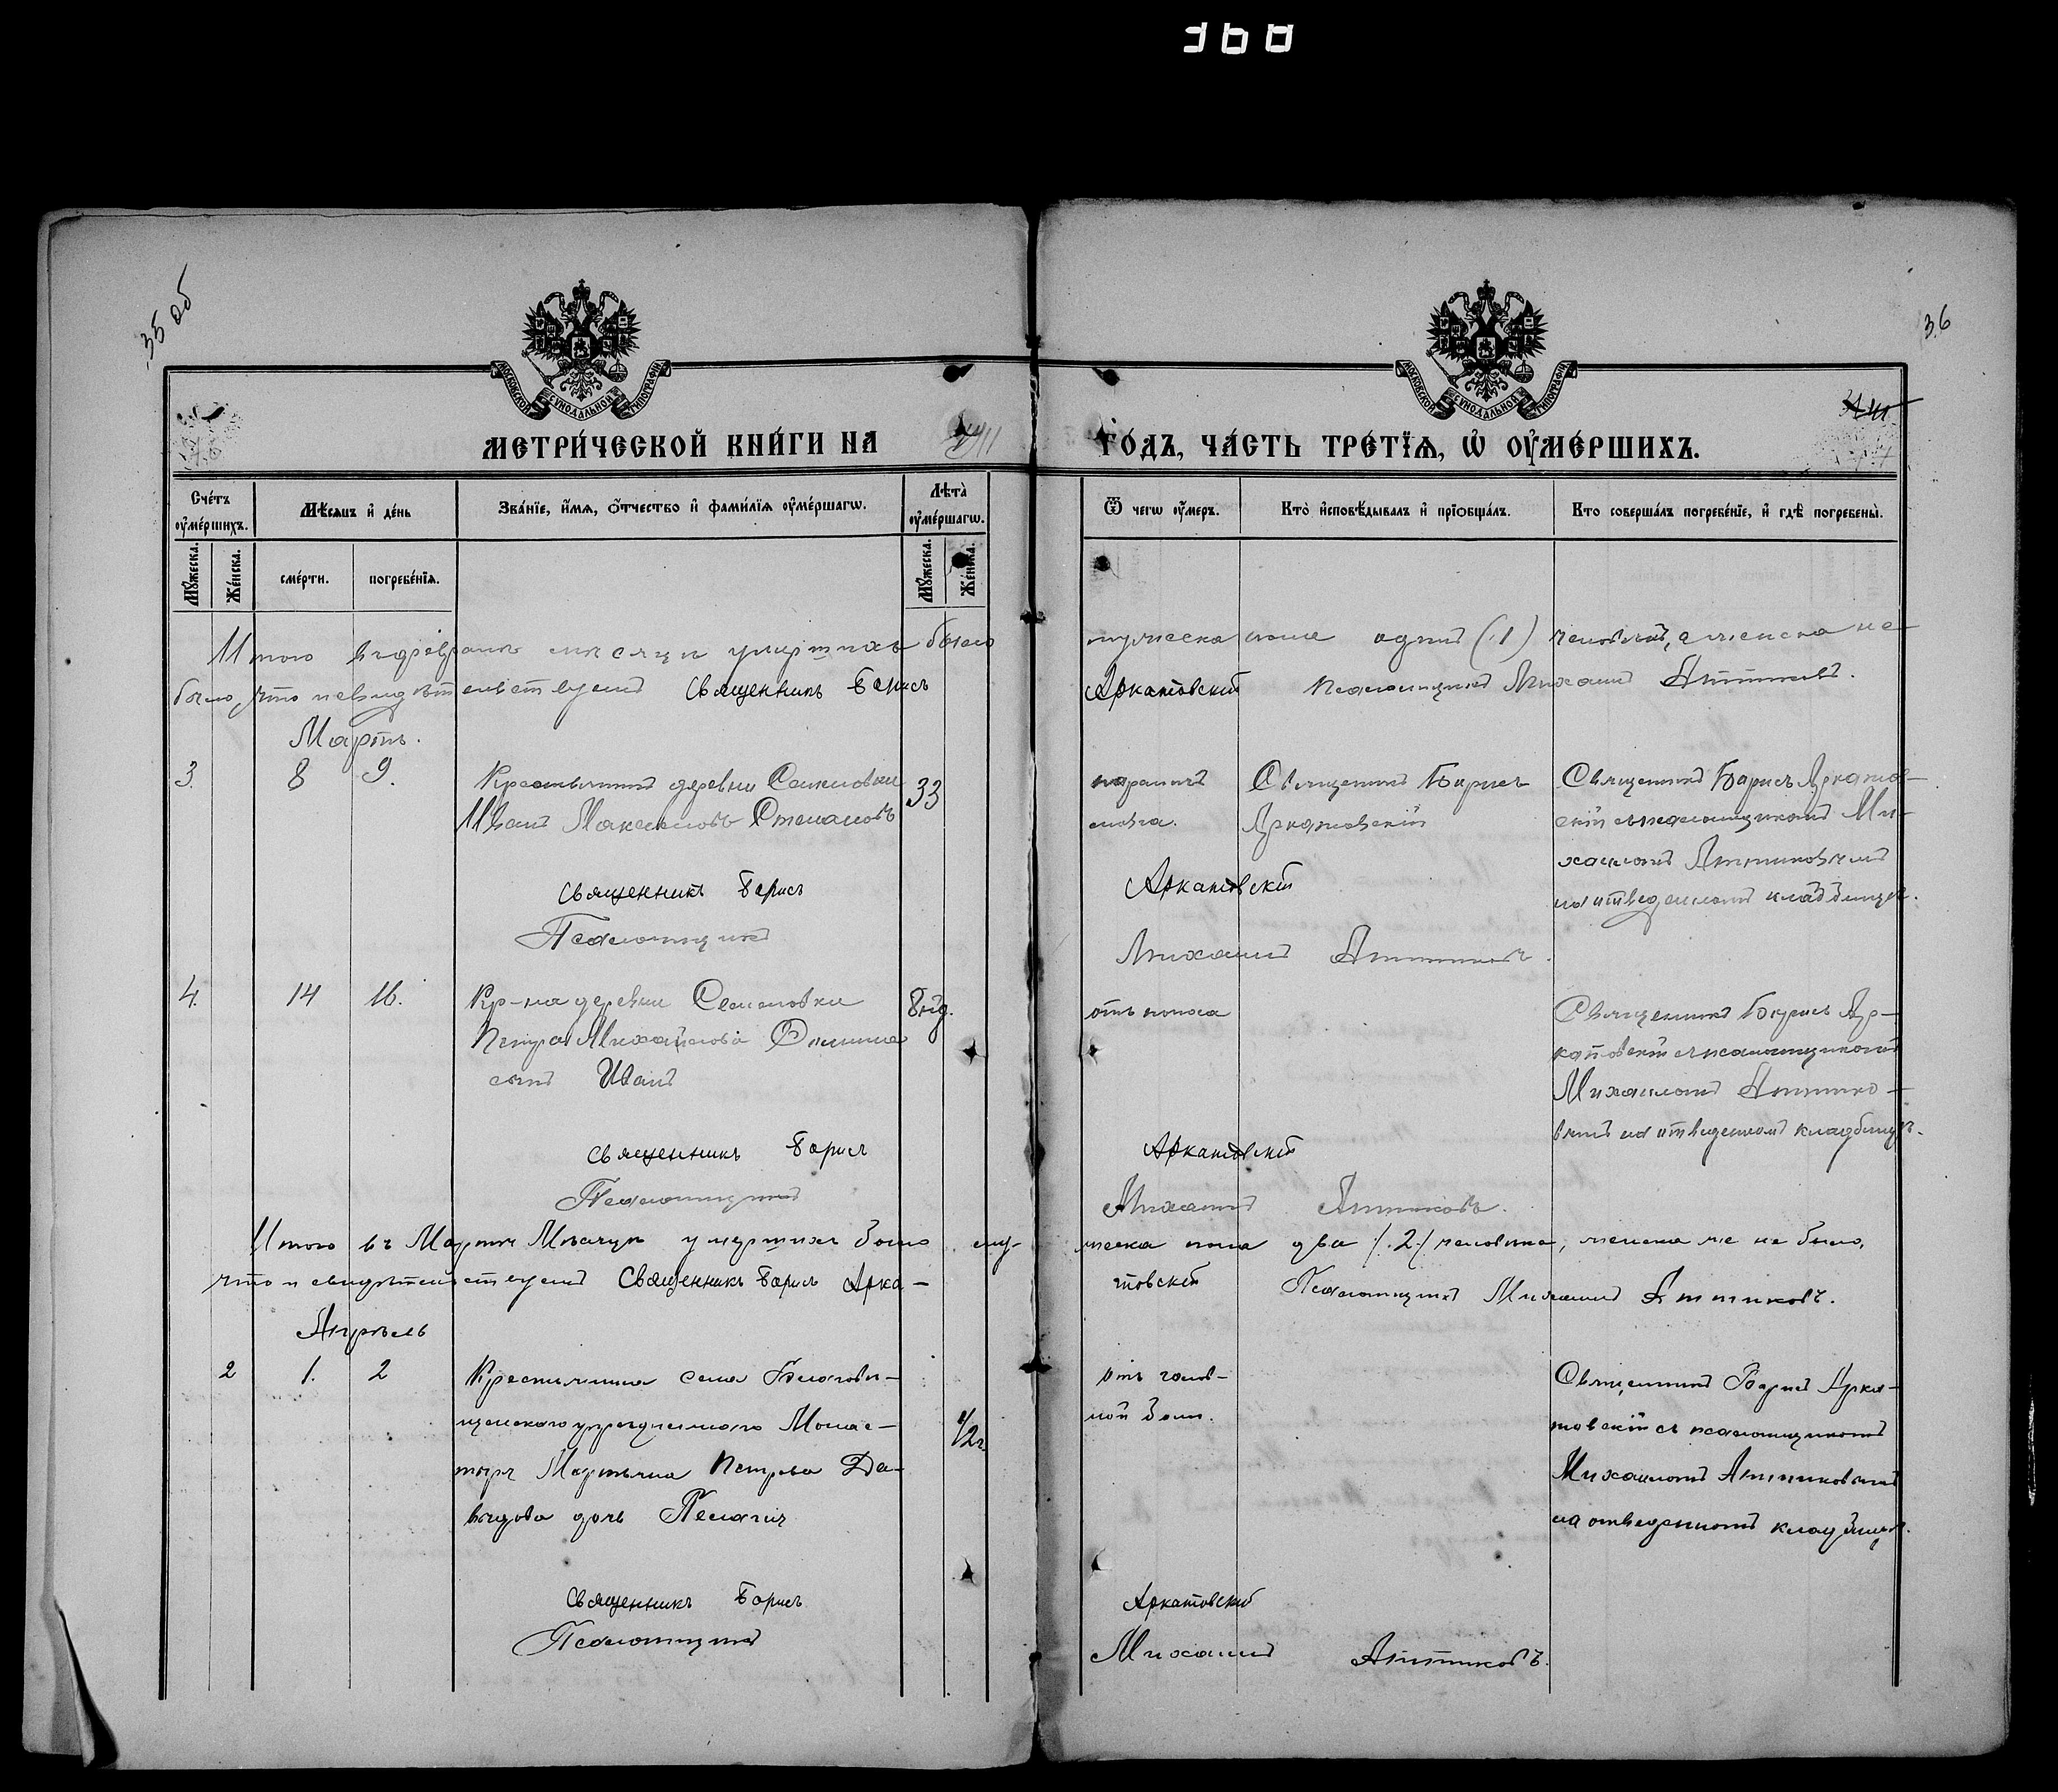 360
35 об
36
МОСКОВСКОЙ СѴНОДАЛЬНОЙ ТИПОГРАФІИ
МОСКОВСКОЙ СѴНОДАЛЬНОЙ ТИПОГРАФІИ
МЕТРИ́ЧЕСКОЙ КНИ́ГИ НА 1911 ГО́ДЪ, ЧА́СТЬ ТРЕ́ТЇѦ, Ѽ ОУ҆МЕ́РШИХЪ.
Сче́тъ оу҆ме́ршихъ.
Мꙋ́жеска.
Же́нска.
Мѣ́сѧцъ и҆ де́нь
сме́рти.
погребе́нїѧ.
Зва́нїе, и҆́мѧ, ѻ҆́тчество и҆ фами́лїѧ оу҆ме́ршагѡ.
Лѣта̀ оу҆ме́ршагѡ.
Мꙋ́жеска.
Же́нска.
Ѿ чегѡ̀ оу҆́меръ.
Кто̀ и҆сповѣ́дывалъ и҆ прїѻбща́лъ.
Кто̀ соверша́лъ погребе́нїе, и҆ гдѣ̀ погребены̀.
Итого въ феврале месяце умершихъ было мужеска пола одинъ (1) человекъ, а женска не
было, что и свидетельствуемъ Священникъ Борисъ Аркатовскій Псаломщикъ Михаилъ Аттиковъ.
Мартъ.
3. 8 9.
Крестьянинъ деревни Семеновки
Иванъ Максимовъ Степановъ
33
паралича
мозга.
Священникъ Борисъ
Аркатовскій
Священникъ Борисъ Аркатов-
скій съ псаломщикомъ Ми-
хаиломъ Аттиковымъ
на отведенномъ кладбище.
Священникъ Борисъ Аркатовскій
Псаломщикъ Михаилъ Аттиковъ.
4. 14 16.
Кр-на деревни Семеновки
Петра Михайлова
сынъ Иванъ
отъ поноса
Священникъ Борисъ Ар-
катовскій съ псаломщикомъ
Михаиломъ Аттико-
вымъ на отведенномъ кладбище.
Священникъ Борисъ Аркатовскій
Псаломщикъ Михаилъ Аттиковъ.
Итого въ Марте Месяце умершихъ было му- жеска пола два (2) человека, женска же не было,
что и свидетельствуемъ Священникъ Борисъ Арка- товскій Псаломщикъ Михаилъ Аттиковъ.
Апрель
2 1. 2
Крестьянина села Благове-
щенского упраздненного Монас-
тыря Мартына Петрова Да-
выдова дочь Пелагия
1/2 г.
отъ голов-
ной боли.
Священникъ Борисъ Арка-
товскій съ псаломщикомъ
Михаиломъ Аттиковымъ
на отведенномъ кладбище.
Священникъ Борисъ Аркатовскій
Псаломщикъ Михаилъ Аттиковъ.